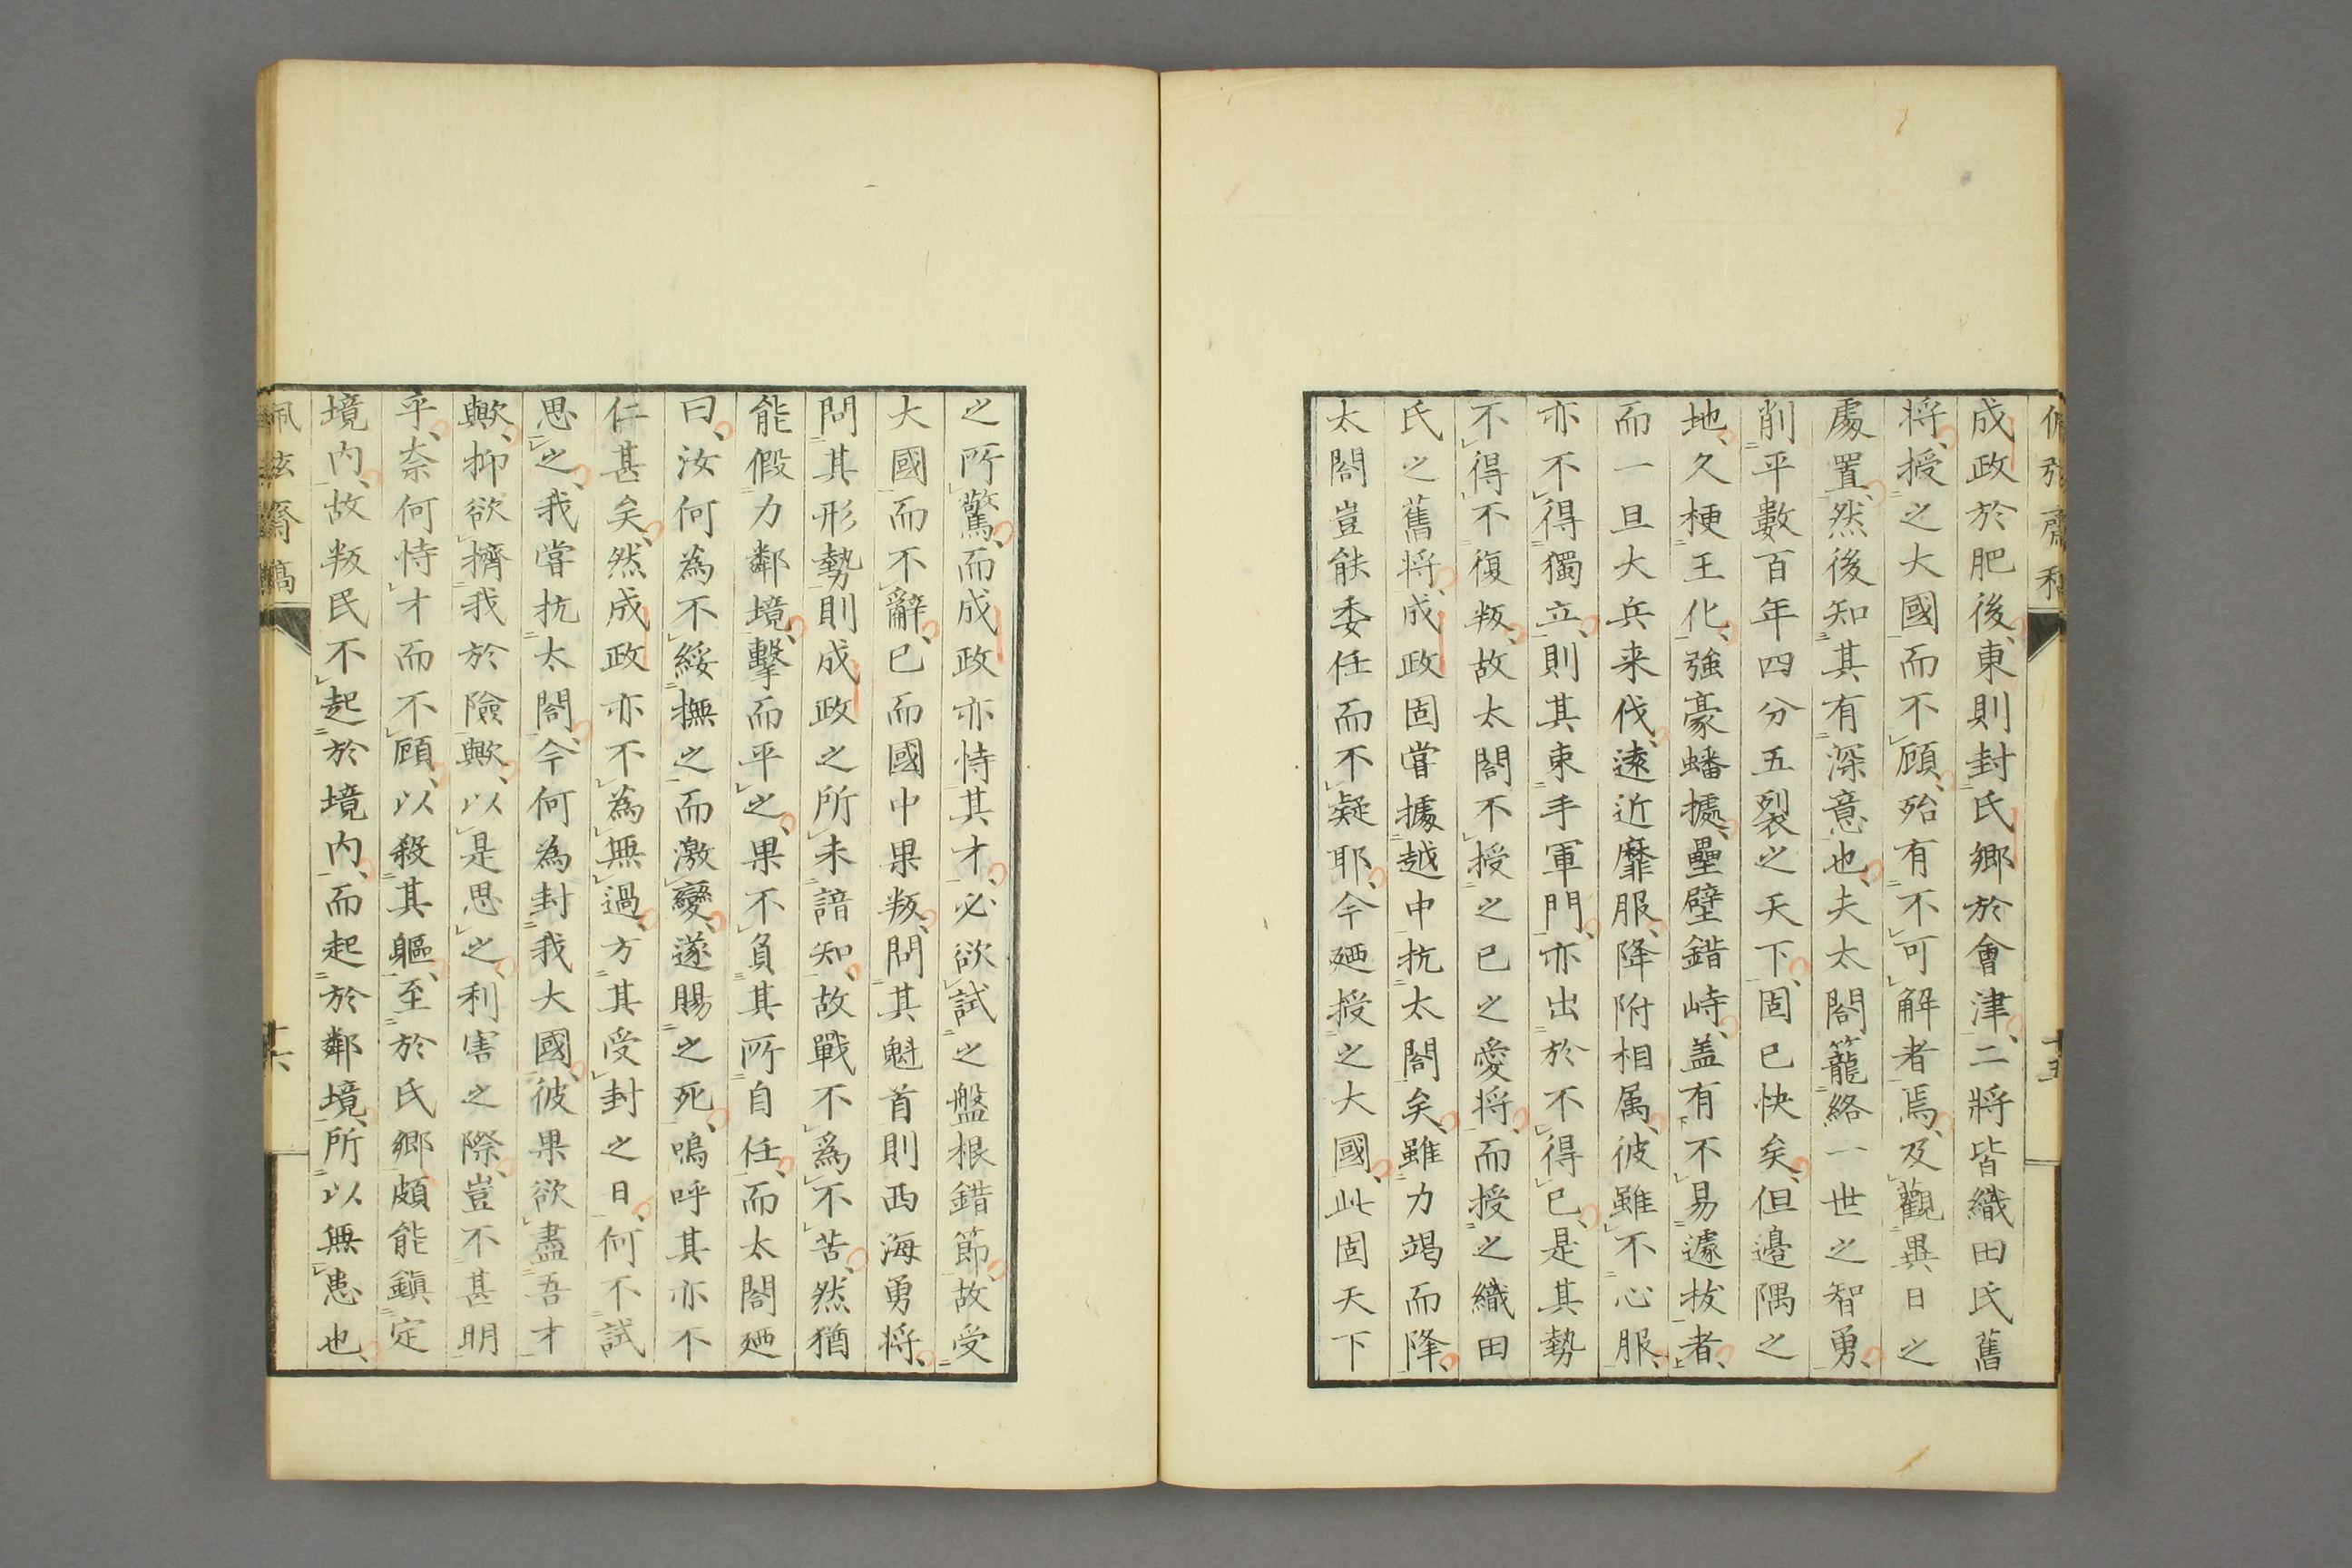 成政於肥後、東則封氏郷於會津、二將皆織田氏舊
将、授之大國而不顧、殆有不可解者焉、及觀異日之
處置、然後知其有深意也、夫太閤籠絡一世之智勇、
削平數百年四分五裂之天下、固已快矣、但邉隅之
地、久梗王化、強豪蟠據、壘壁錯峙、盖有不易遽抜者、
而一旦大兵来伐、遠近靡服、降附相属、彼雖不心服、
亦不得獨立、則其東手軍門、亦出於不得已、是其勢
不得不復叛、故太閤不授之已之愛将、而授之織田
氏之舊将、成政固嘗據越中抗太閤矣、雖力竭而降、
太閤豈能委任而不疑耶、今廼授之大國、此固天下
十五
之所驚、而成政亦恃其才、必欲試之盤根錯節、故受
大國而不辭、已而國中果叛、問其魁首則西海勇将、
問其形勢則成政之所未諳知、故戰不爲不苦、然猶
能假力鄰境、擊而平之、果不負其所自任、而太閤廼
曰、汝何為不綏撫之而激變、遂賜之死、嗚呼其亦不
仁甚矣、然成政亦不為無過、方其受封之日、何不試
思之、我嘗抗太閤、今何為封我大國、彼果欲盡吾才
歟、抑欲擠我於險歟、以是思之、利害之際、豈不甚明
乎、奈何恃才而不顧、以殺其軀、至於氏郷頗能鎭定
境内、故叛民不起於境内、而起於鄰境、所以無患也、
佩弦齋稿
十六